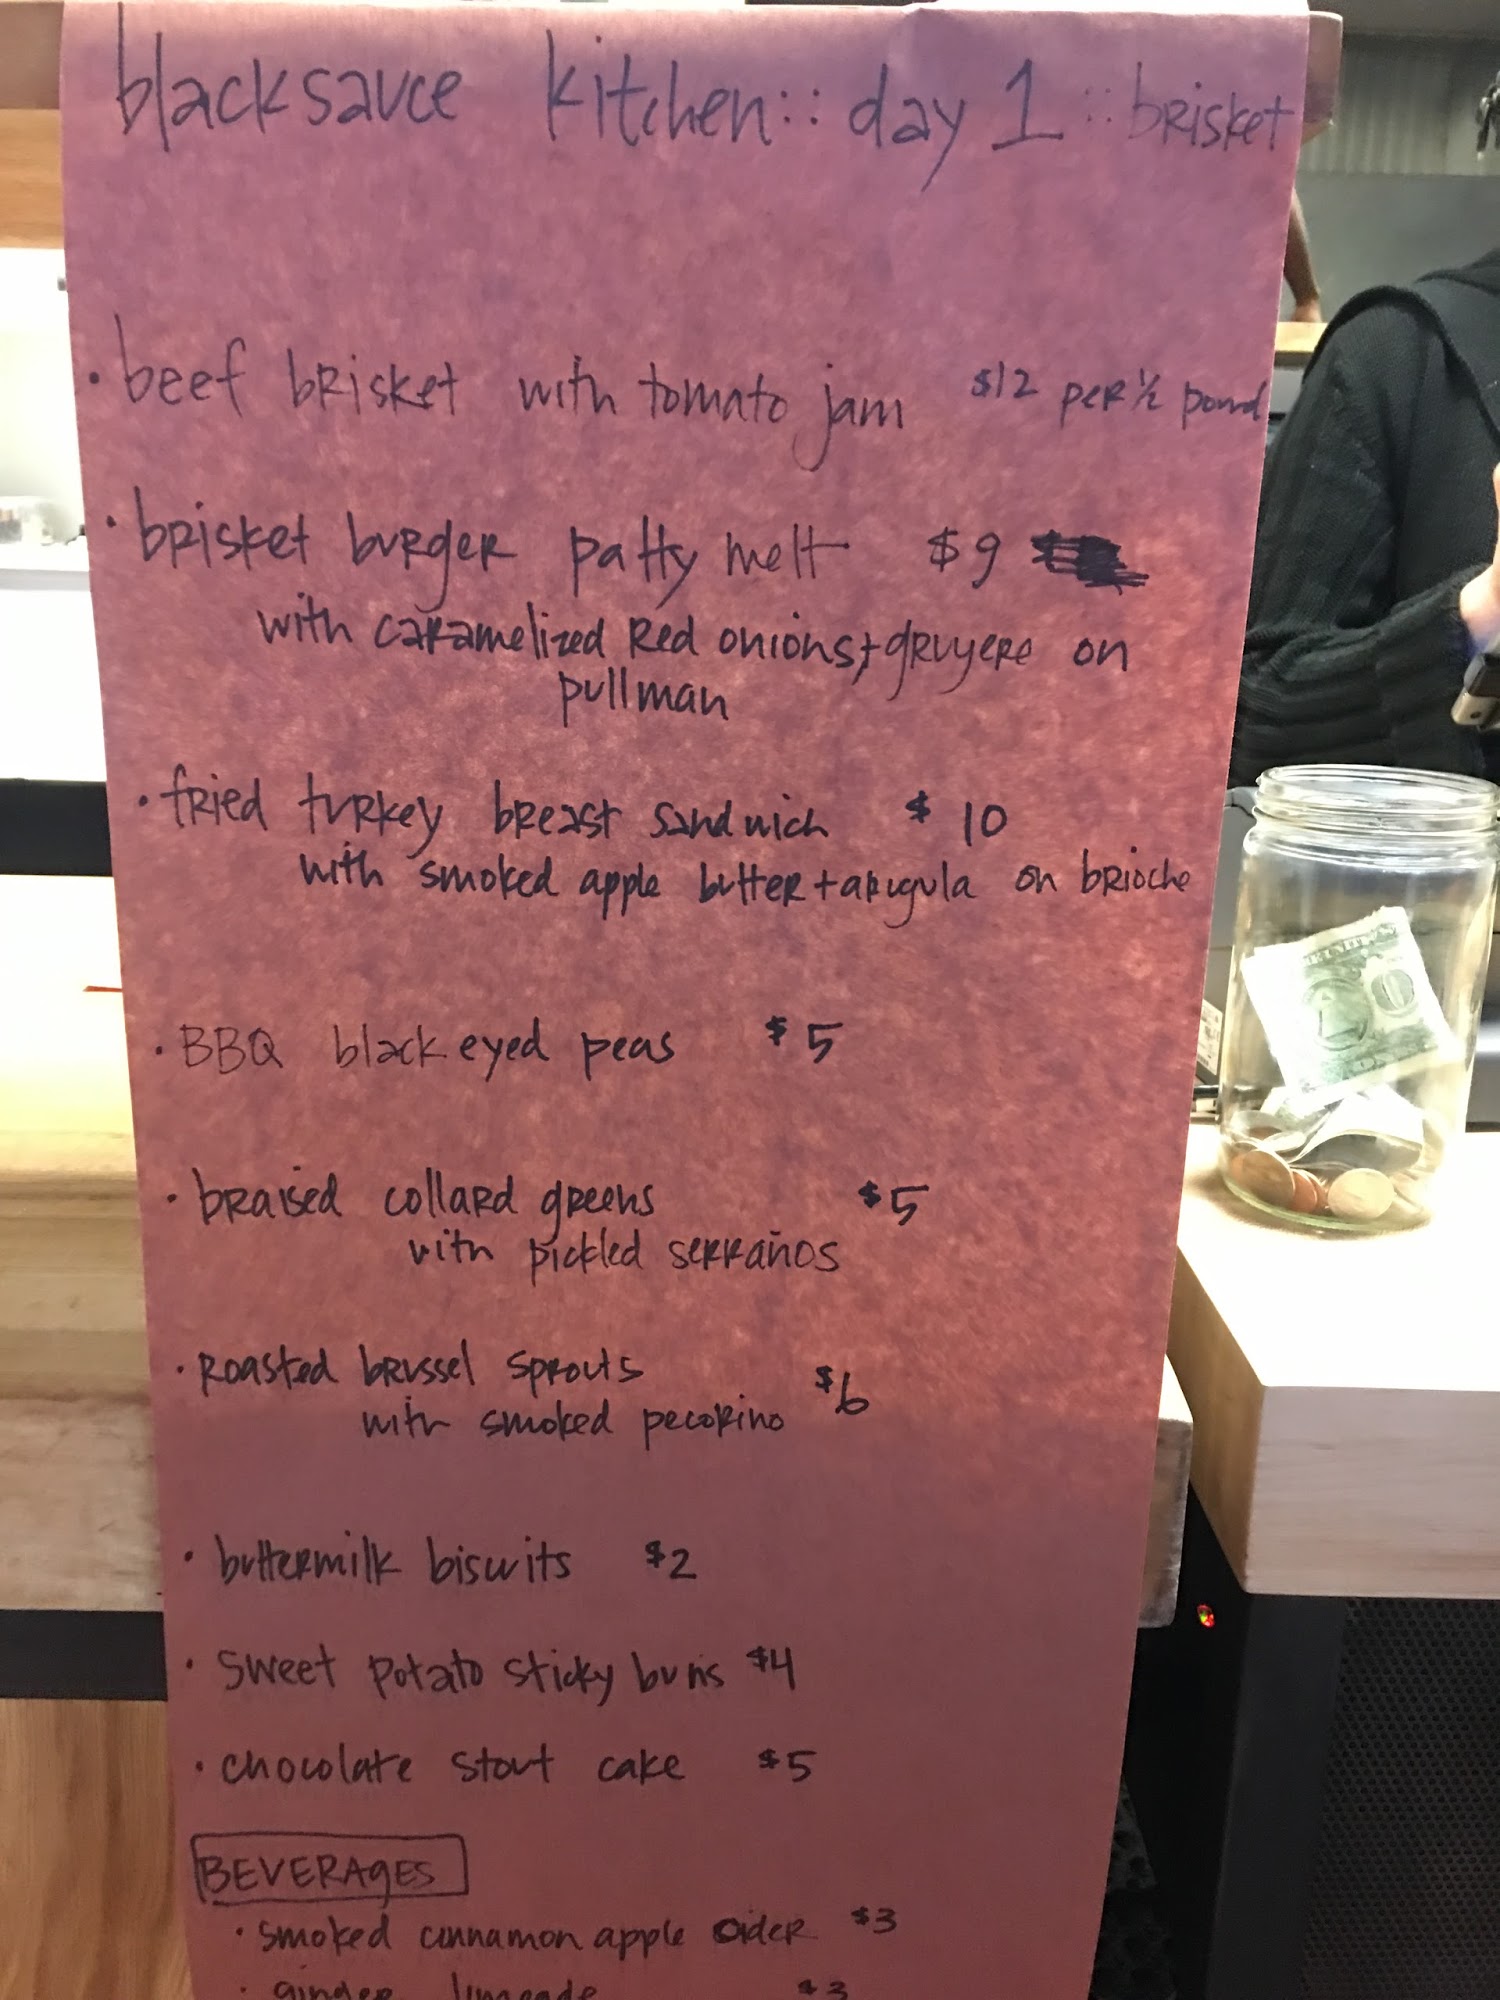 blacksauce kitchen:: day 1 :: brisket
· beef brisket with tomato jam $12 per ½ pound
· brisket burger patty melt $9
with caramelized red onions + gruyere on
pullman
· fried turkey breast sandwich $10
with smoked apple butter + arugula on brioche
· BBQ black eyed peas $5
· braised collard greens $5
with pickled serraños
· roasted brussel sprouts $6
with smoked pecorino
· buttermilk biscuits $2
· sweet potato sticky buns $4
· chocolate stout cake $5
BEVERAGES
· smoked cinnamon apple cider $3
· ginger limeade $3